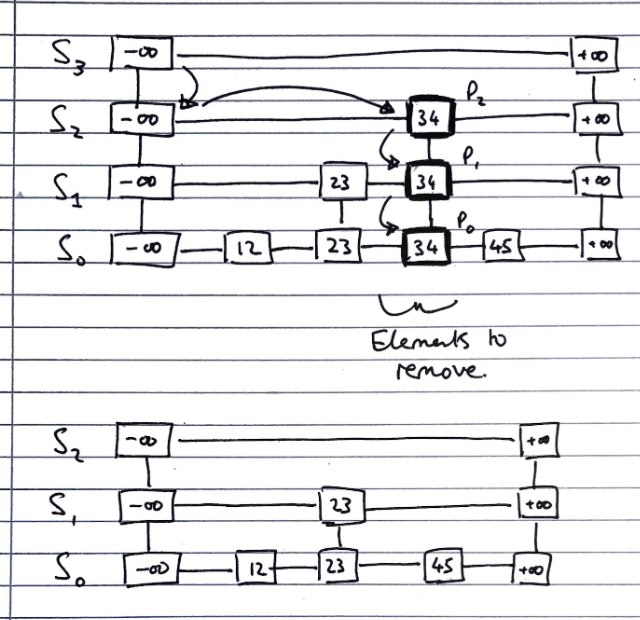 S₃ -∞ +∞
S₂ -∞ 34 P₂ +∞
S₁ -∞ 23 34 P₁ +∞
S₀ -∞ 12 23 34 P₀ 45 +∞
Elements to
remove.
S₂ -∞ +∞
S₁ -∞ 23 +∞
S₀ -∞ 12 23 45 +∞